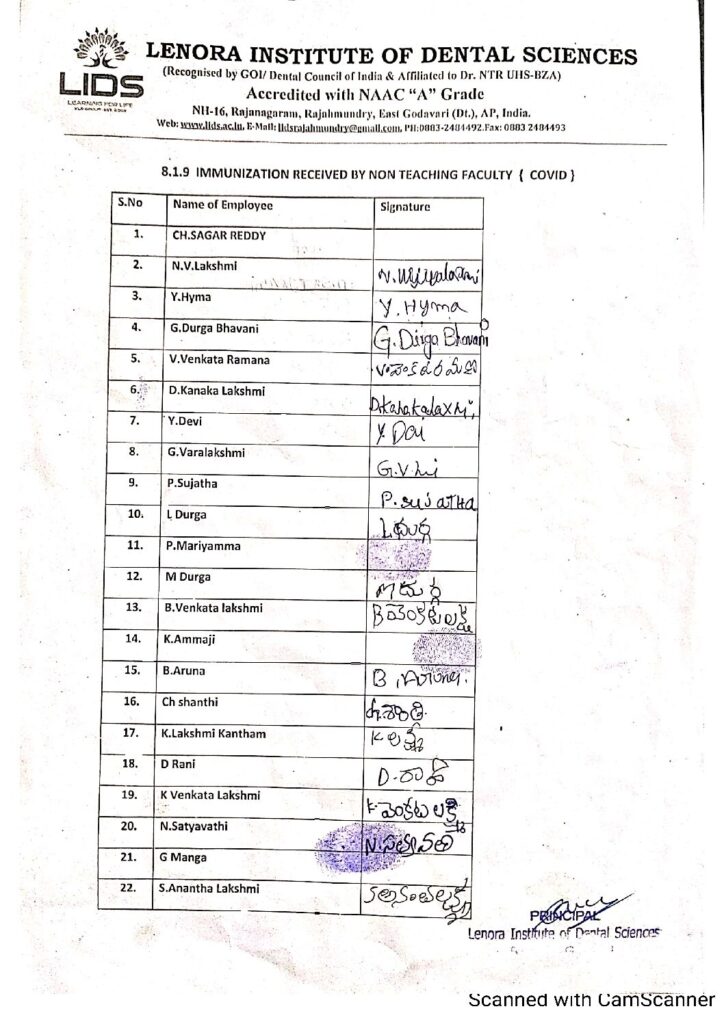 LENORA INSTITUTE OF DENTAL SCIENCES
(Recognised by GOI/ Dental Council of India & Affiliated to Dr. NTR UHS-BZA)
LIDS
Accredited with NAAC "A" Grade
LEARNING FOR LIFE
NH-16, Rajanagaram, Rajahmundry, East Godavari (Dt.), AP, India.
Web: www.lids.ac.in, E-Mail: lidsrajahmundry@gmail.com, PH:0883-2484492.Fax: 0883 2484493
8.1.9 IMMUNIZATION RECEIVED BY NON TEACHING FACULTY ( COVID )
S.No Name of Employee Signature
1. CH.SAGAR REDDY
2. N.V.Lakshmi
3. Y.Hyma Y. Hyma
4. G.Durga Bhavani G. Dirga Bhavani
5. V.Venkata Ramana
6. D.Kanaka Lakshmi
7. Y.Devi
8. G.Varalakshmi
9. P.Sujatha P. sujatha
10. L Durga
11. P.Mariyamma
12. M Durga M దుర్గ
13. B.Venkata lakshmi
14. K.Ammaji
15. B.Aruna
16. Ch shanthi
17. K.Lakshmi Kantham
18. D Rani
19. K Venkata Lakshmi
20. N.Satyavathi
21. G Manga
22. S.Anantha Lakshmi
PRINCIPAL
Lenora Institute of Dental Sciences
Scanned with CamScanner